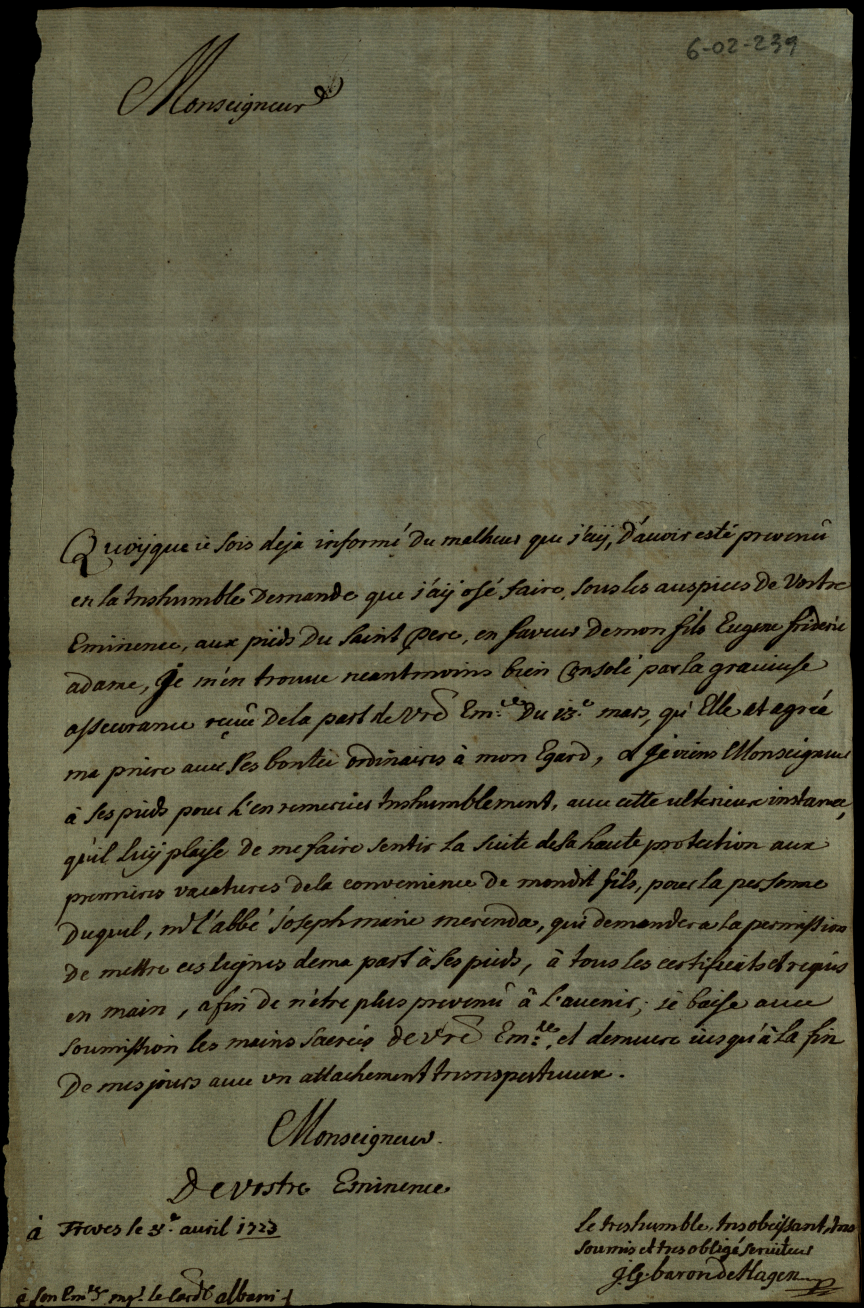 6-02-239
Monseigneur
Quoyque ie sois deja informé du malheur que j'aÿ, d'auoir esté prevenû
en la treshumble demande que j'aÿ osé faire, sous les auspices de Vostre
Eminence, aux pieds du Saint Pere, en faveur de mon fils Eugene frideric
adame, je m'en trouue neantmoins bien consolé par la gracieuse
asseurance reçuë de la part de Vre Em.ce du 13.e mars, qu'Elle at agréé
ma priere auec ses bontés ordinaires à mon Egard, & je viens Monseigneur
à ses pieds pour l'en remercier treshumblement, auec cette ulterieure instance,
qu'il luÿ plaise de me faire sentir la suite de sa haute protection aux
premieres vacatures de la convenience de mondit fils, pour la personne
duquel, mr l'abbé joseph marie merenda, qui demandera la permission
de mettre ces lignes de ma part à ses pieds, à tous les certificats requis
en main, afin de n'être plus prevenû à l'avenir; ie baise auec
soumission les mains sacrées de vre Em.ce, et demeure iusqu'à la fin
de mes jours auec vn attachement tresrespectueux.
Monseigneur
De vostre Eminence
à Treves le 3.e avril 1723
Le treshumble, tresobeissant, tres
soumis et tres obligé seruiteur
J. G. baron de Hagen
à son Em.ce mgr. le Card.l albani